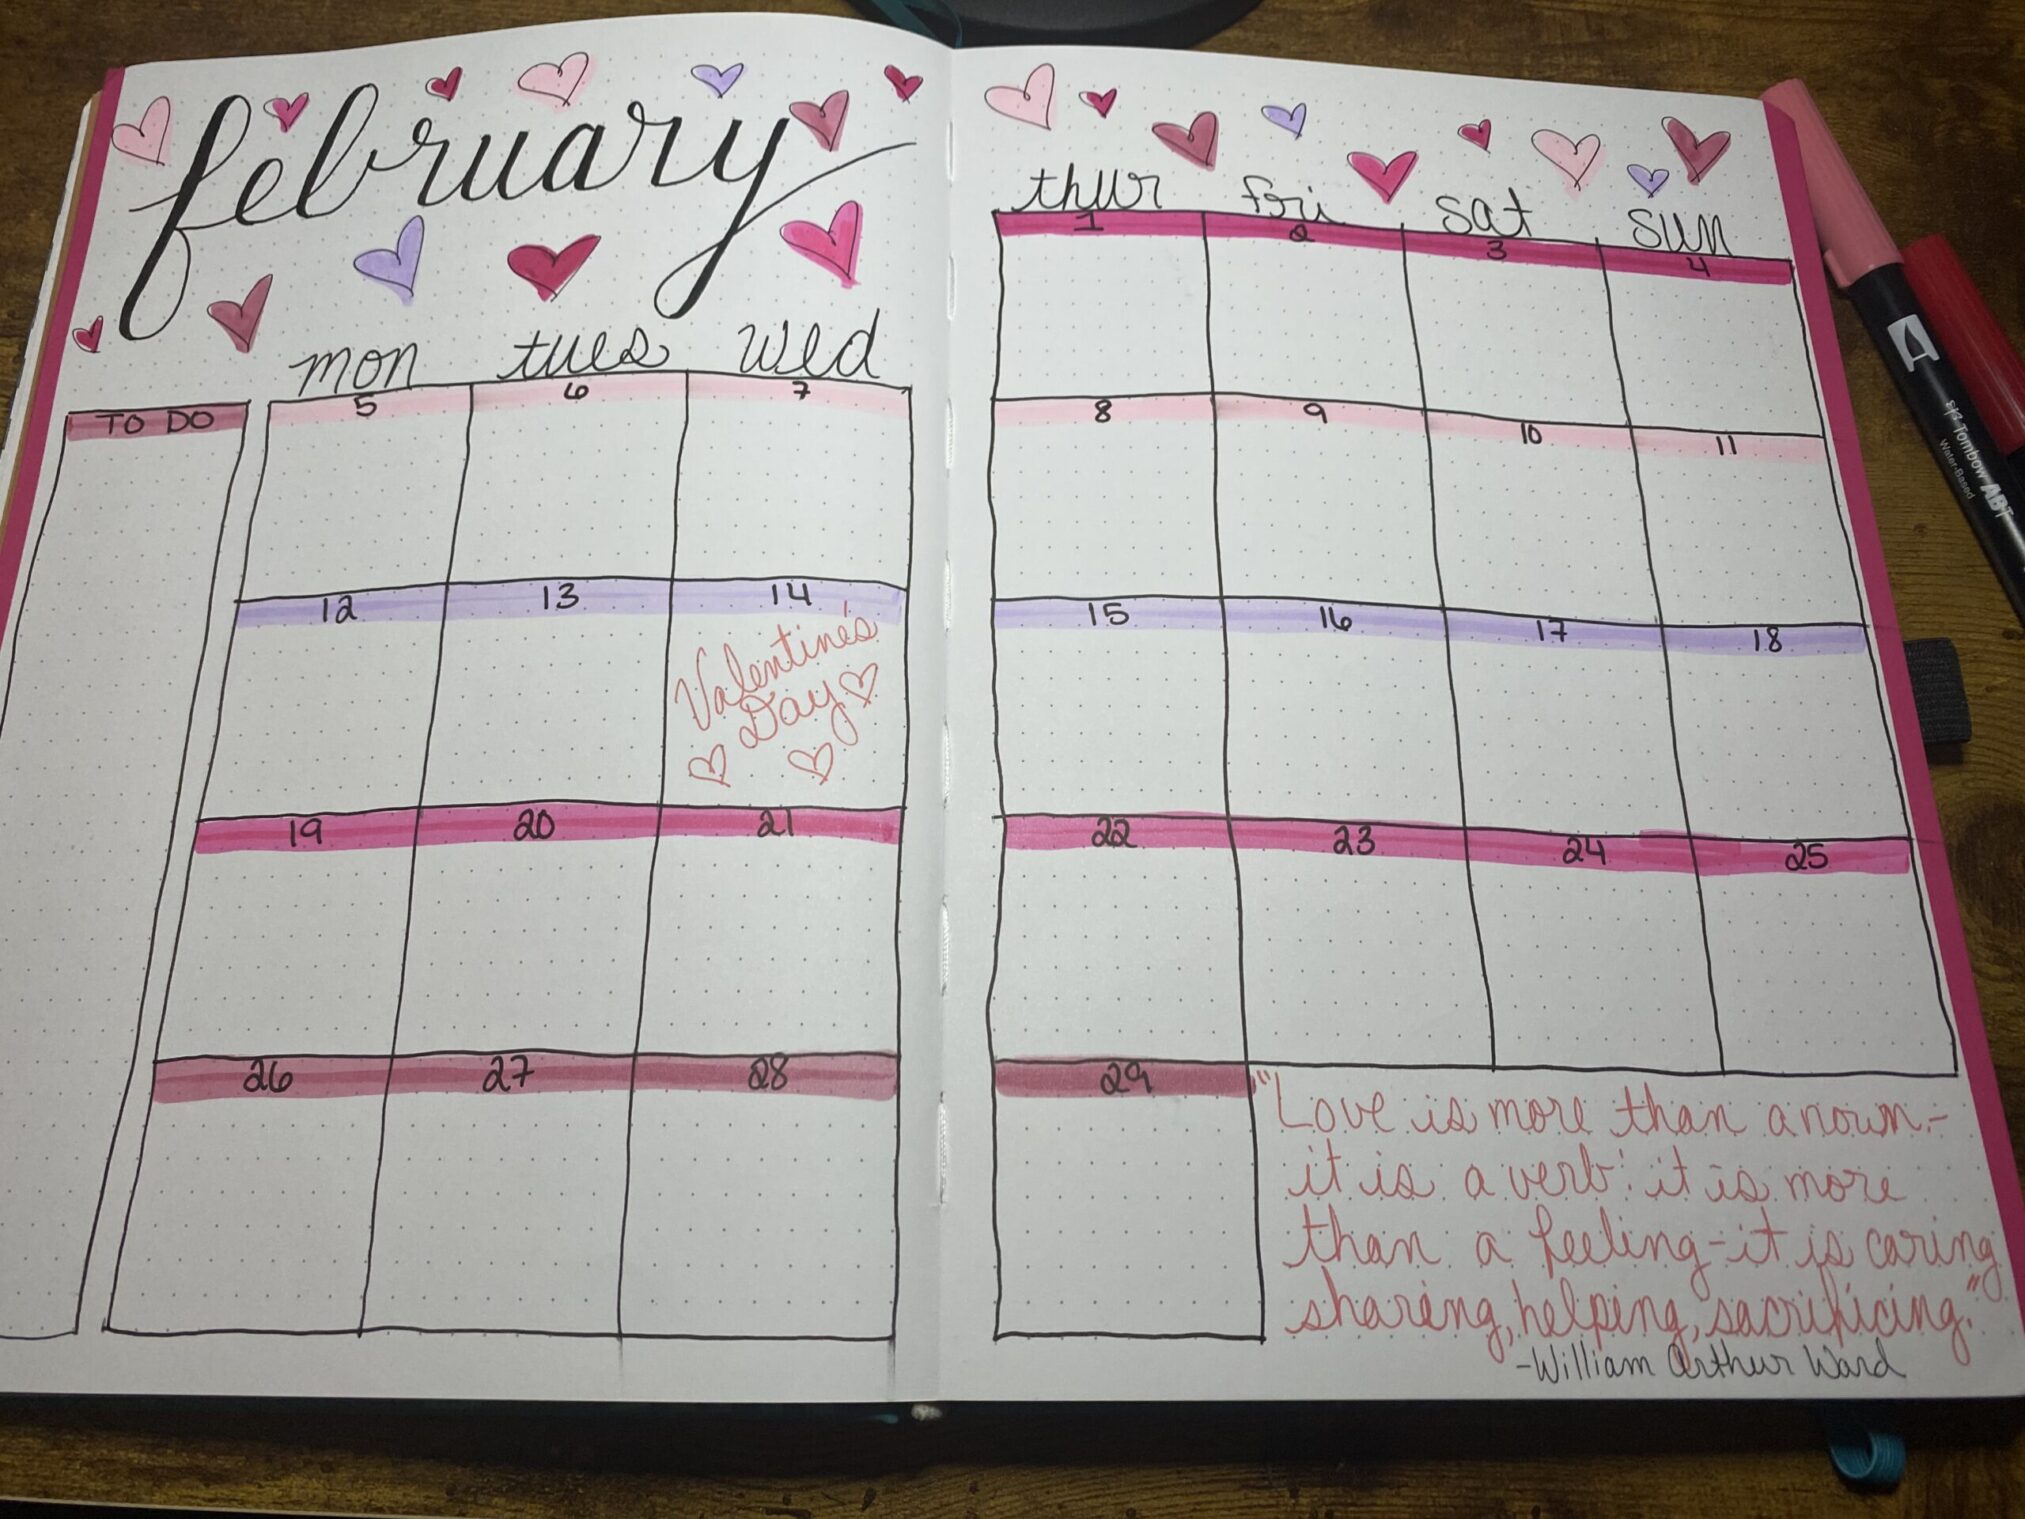 february
thur fri sat sun
1 2 3 4
mon tues wed
TO DO
5 6 7
8 9 10 11
12 13 14
Valentine's
Day
15 16 17 18
19 20 21
22 23 24 25
26 27 28
29
"Love is more than a noun-
it is a verb: it is more
than a feeling-it is caring
sharing, helping, sacrificing."
-William Arthur Ward
Tombow ABT
Water-Based